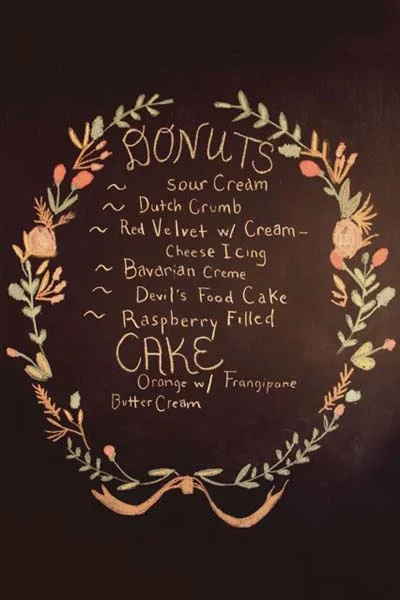 DONUTS
~ Sour Cream
~ Dutch Crumb
~ Red Velvet w/ Cream-
Cheese Icing
~ Bavarian Creme
~ Devil's Food Cake
~ Raspberry Filled
CAKE
Orange w/ Frangipane
Butter Cream